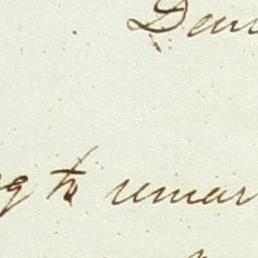 Dear
g to remar